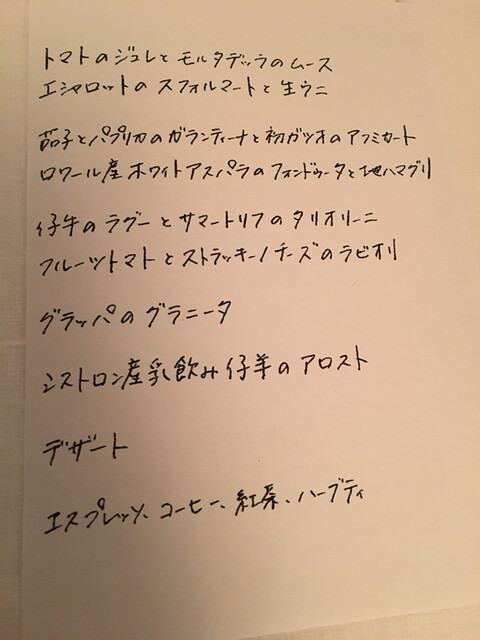 トマトのジュレと モルタデッラのムース
エシャロットの スフォルマートと 生ウニ
茄子とパプリカのガランティーナと初ガツオのアフミカート
ロワール産ホワイトアスパラのフォンドゥータと地ハマグリ
仔牛のラグーとサマートリフのタリオリーニ
フルーツトマトとストラッキーノチーズのラビオリ
グラッパのグラニータ
シストロン産乳飲み仔羊のアロスト
デザート
エスプレッソ、コーヒー、紅茶、ハーブティ